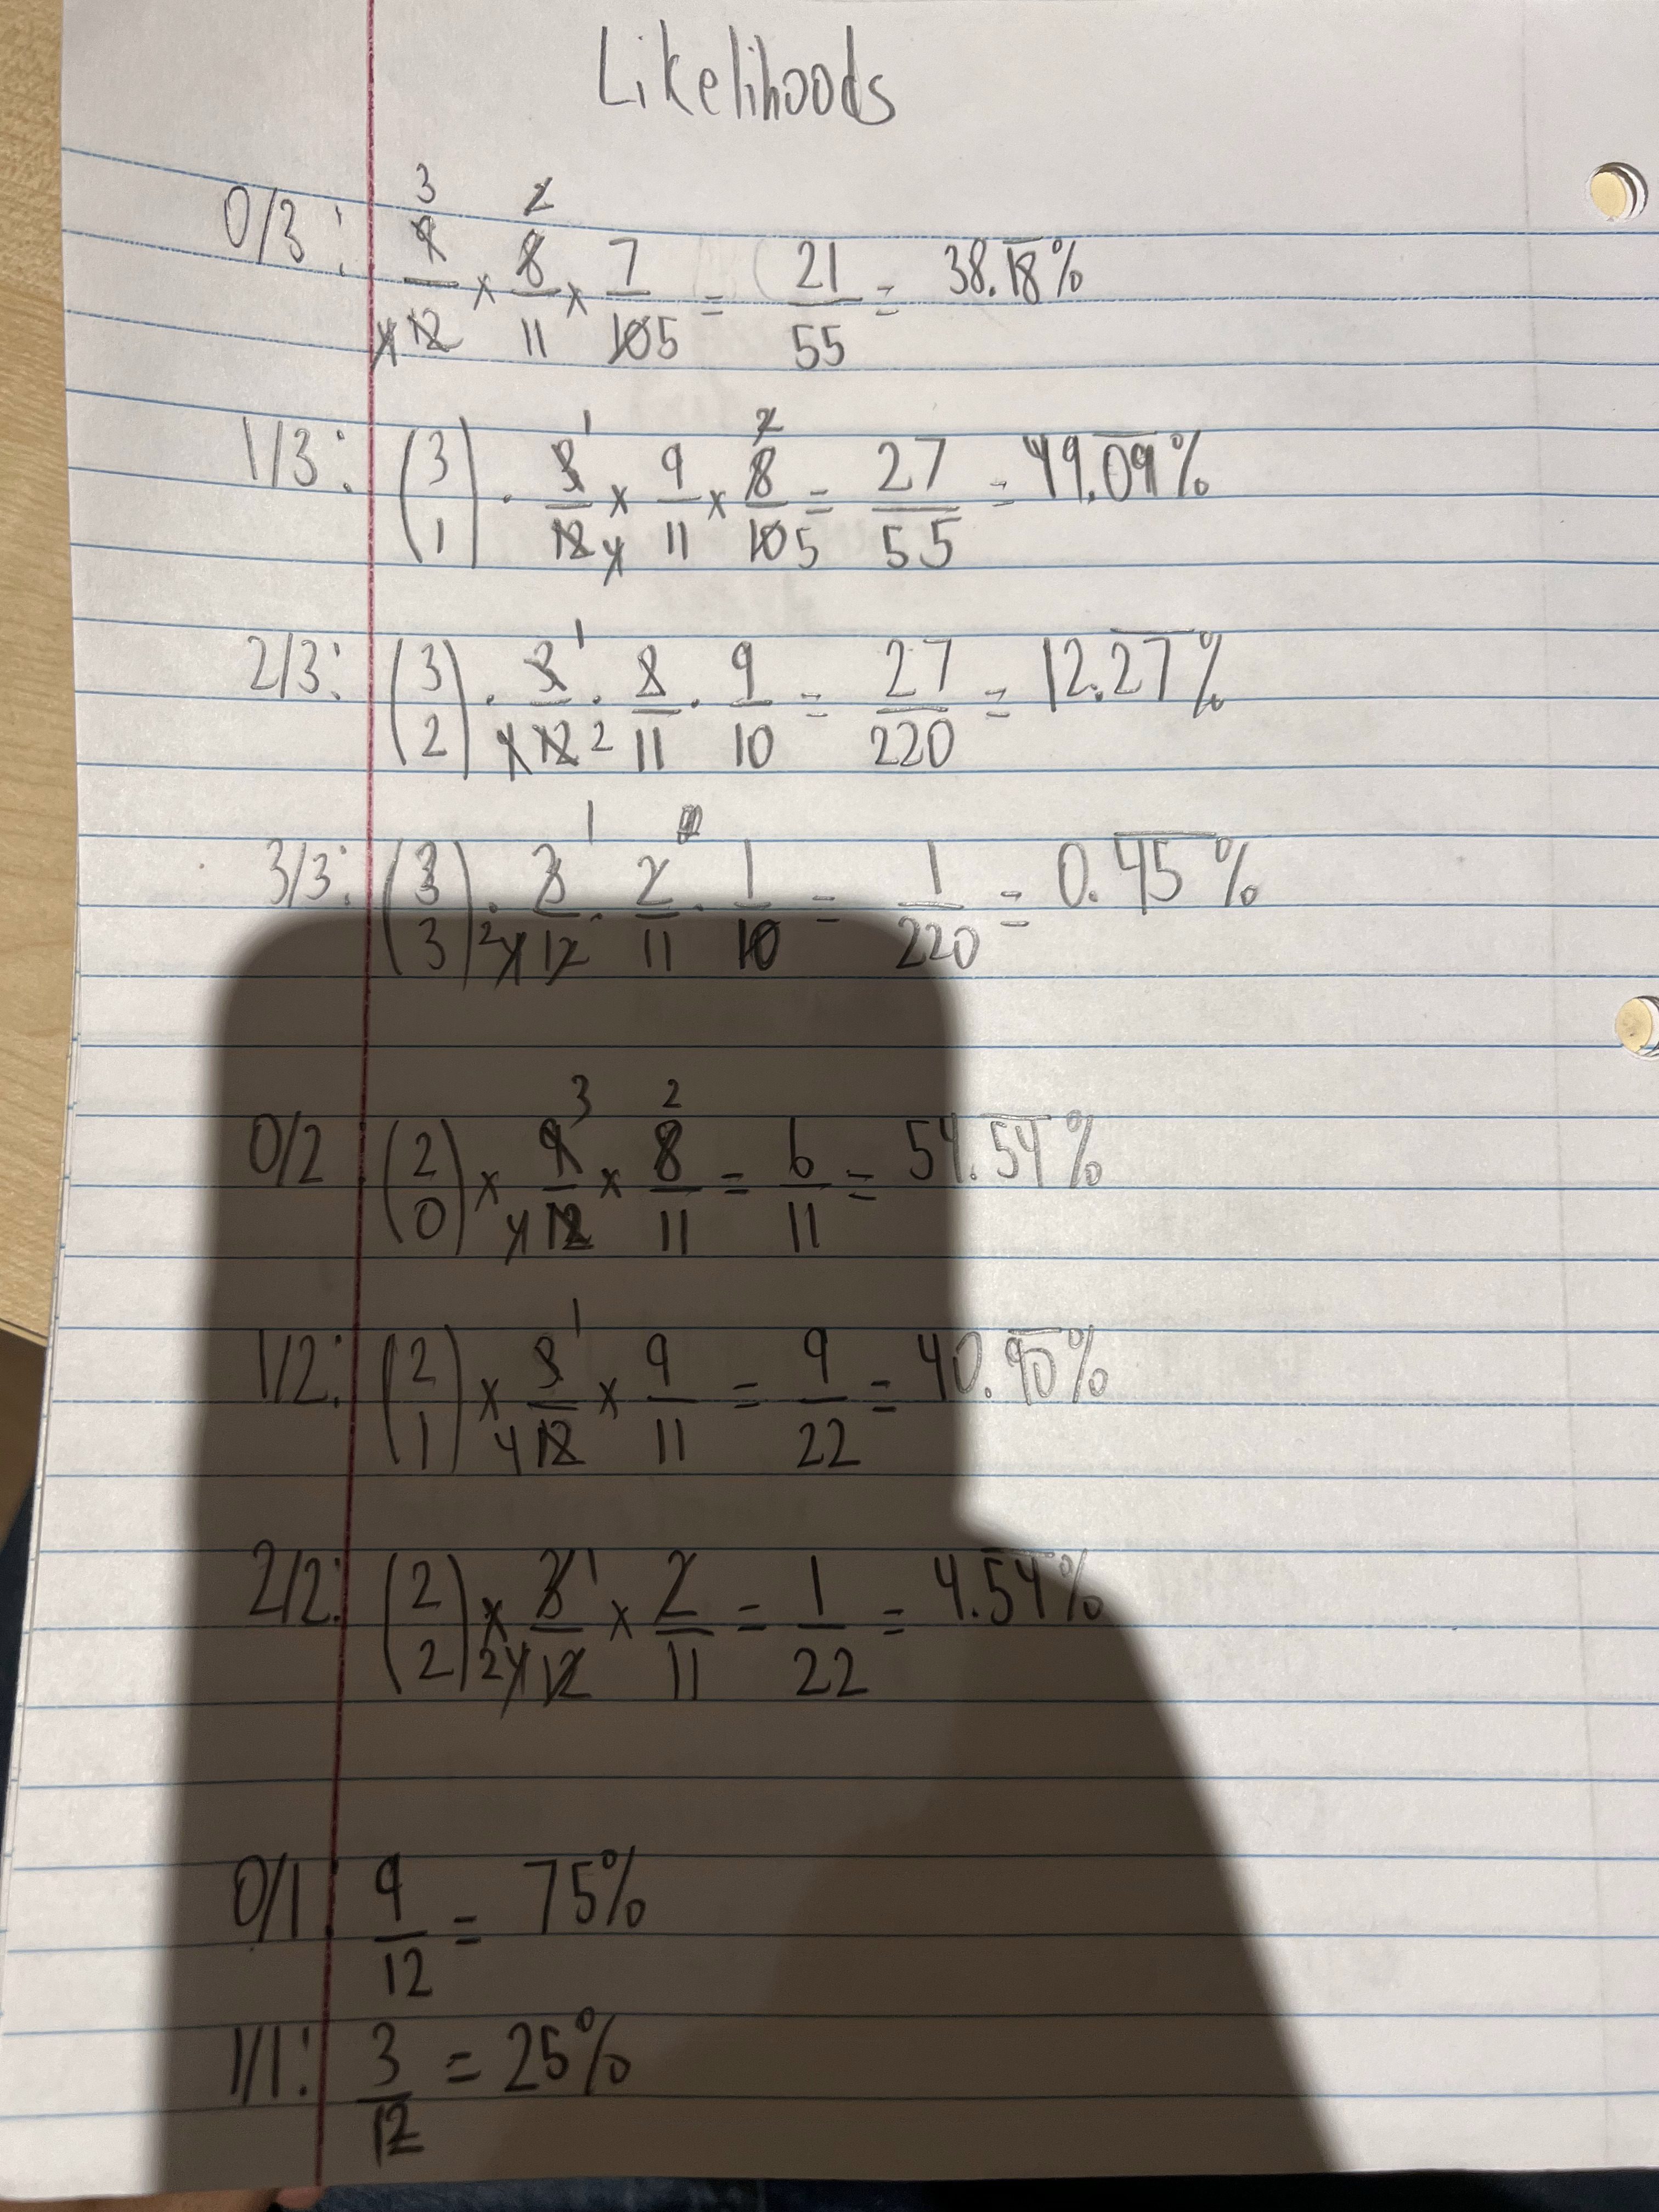 Likelihoods
0/3: 9/12 3 4 × 8/11 2 × 7/10 5 = 21/55 = 38.18%
1/3: (3 1) · 3/12 1 4 × 9/11 × 8/10 2 5 = 27/55 = 49.09%
2/3: (3 2) · 3/12 1 4 2 · 2/11 · 9/10 = 27/220 = 12.27%
3/3: (3 3) · 3/12 1 4 2 · 2/11 · 1/10 = 1/220 = 0.45%
0/2 (2 0) × 9/12 3 4 × 8/11 2 = 6/11 = 54.54%
1/2: (2 1) × 3/12 1 4 × 9/11 = 9/22 = 40.90%
2/2: (2 2) × 3/12 1 4 2 × 2/11 = 1/22 = 4.54%
0/1: 9/12 = 75%
1/1: 3/12 = 25%